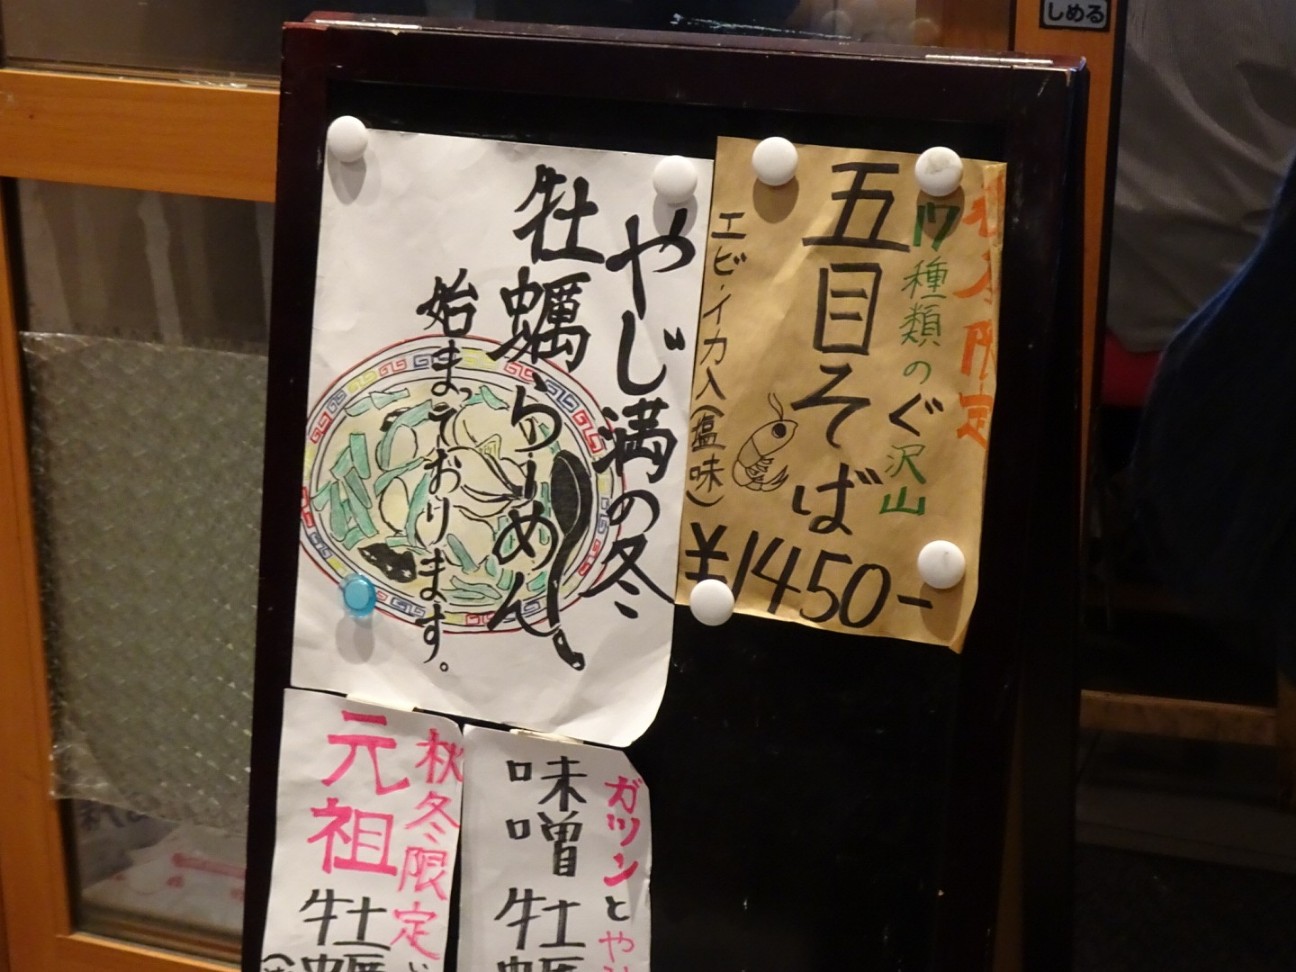 しめる
やじ満の冬
牡蠣らーめん
始まっております。
限定
17種類のぐ沢山
五目そば
エビ・イカ入(塩味)
¥1450-
秋冬限定
元祖
牡蠣
ガツンとや
味噌
牡蠣